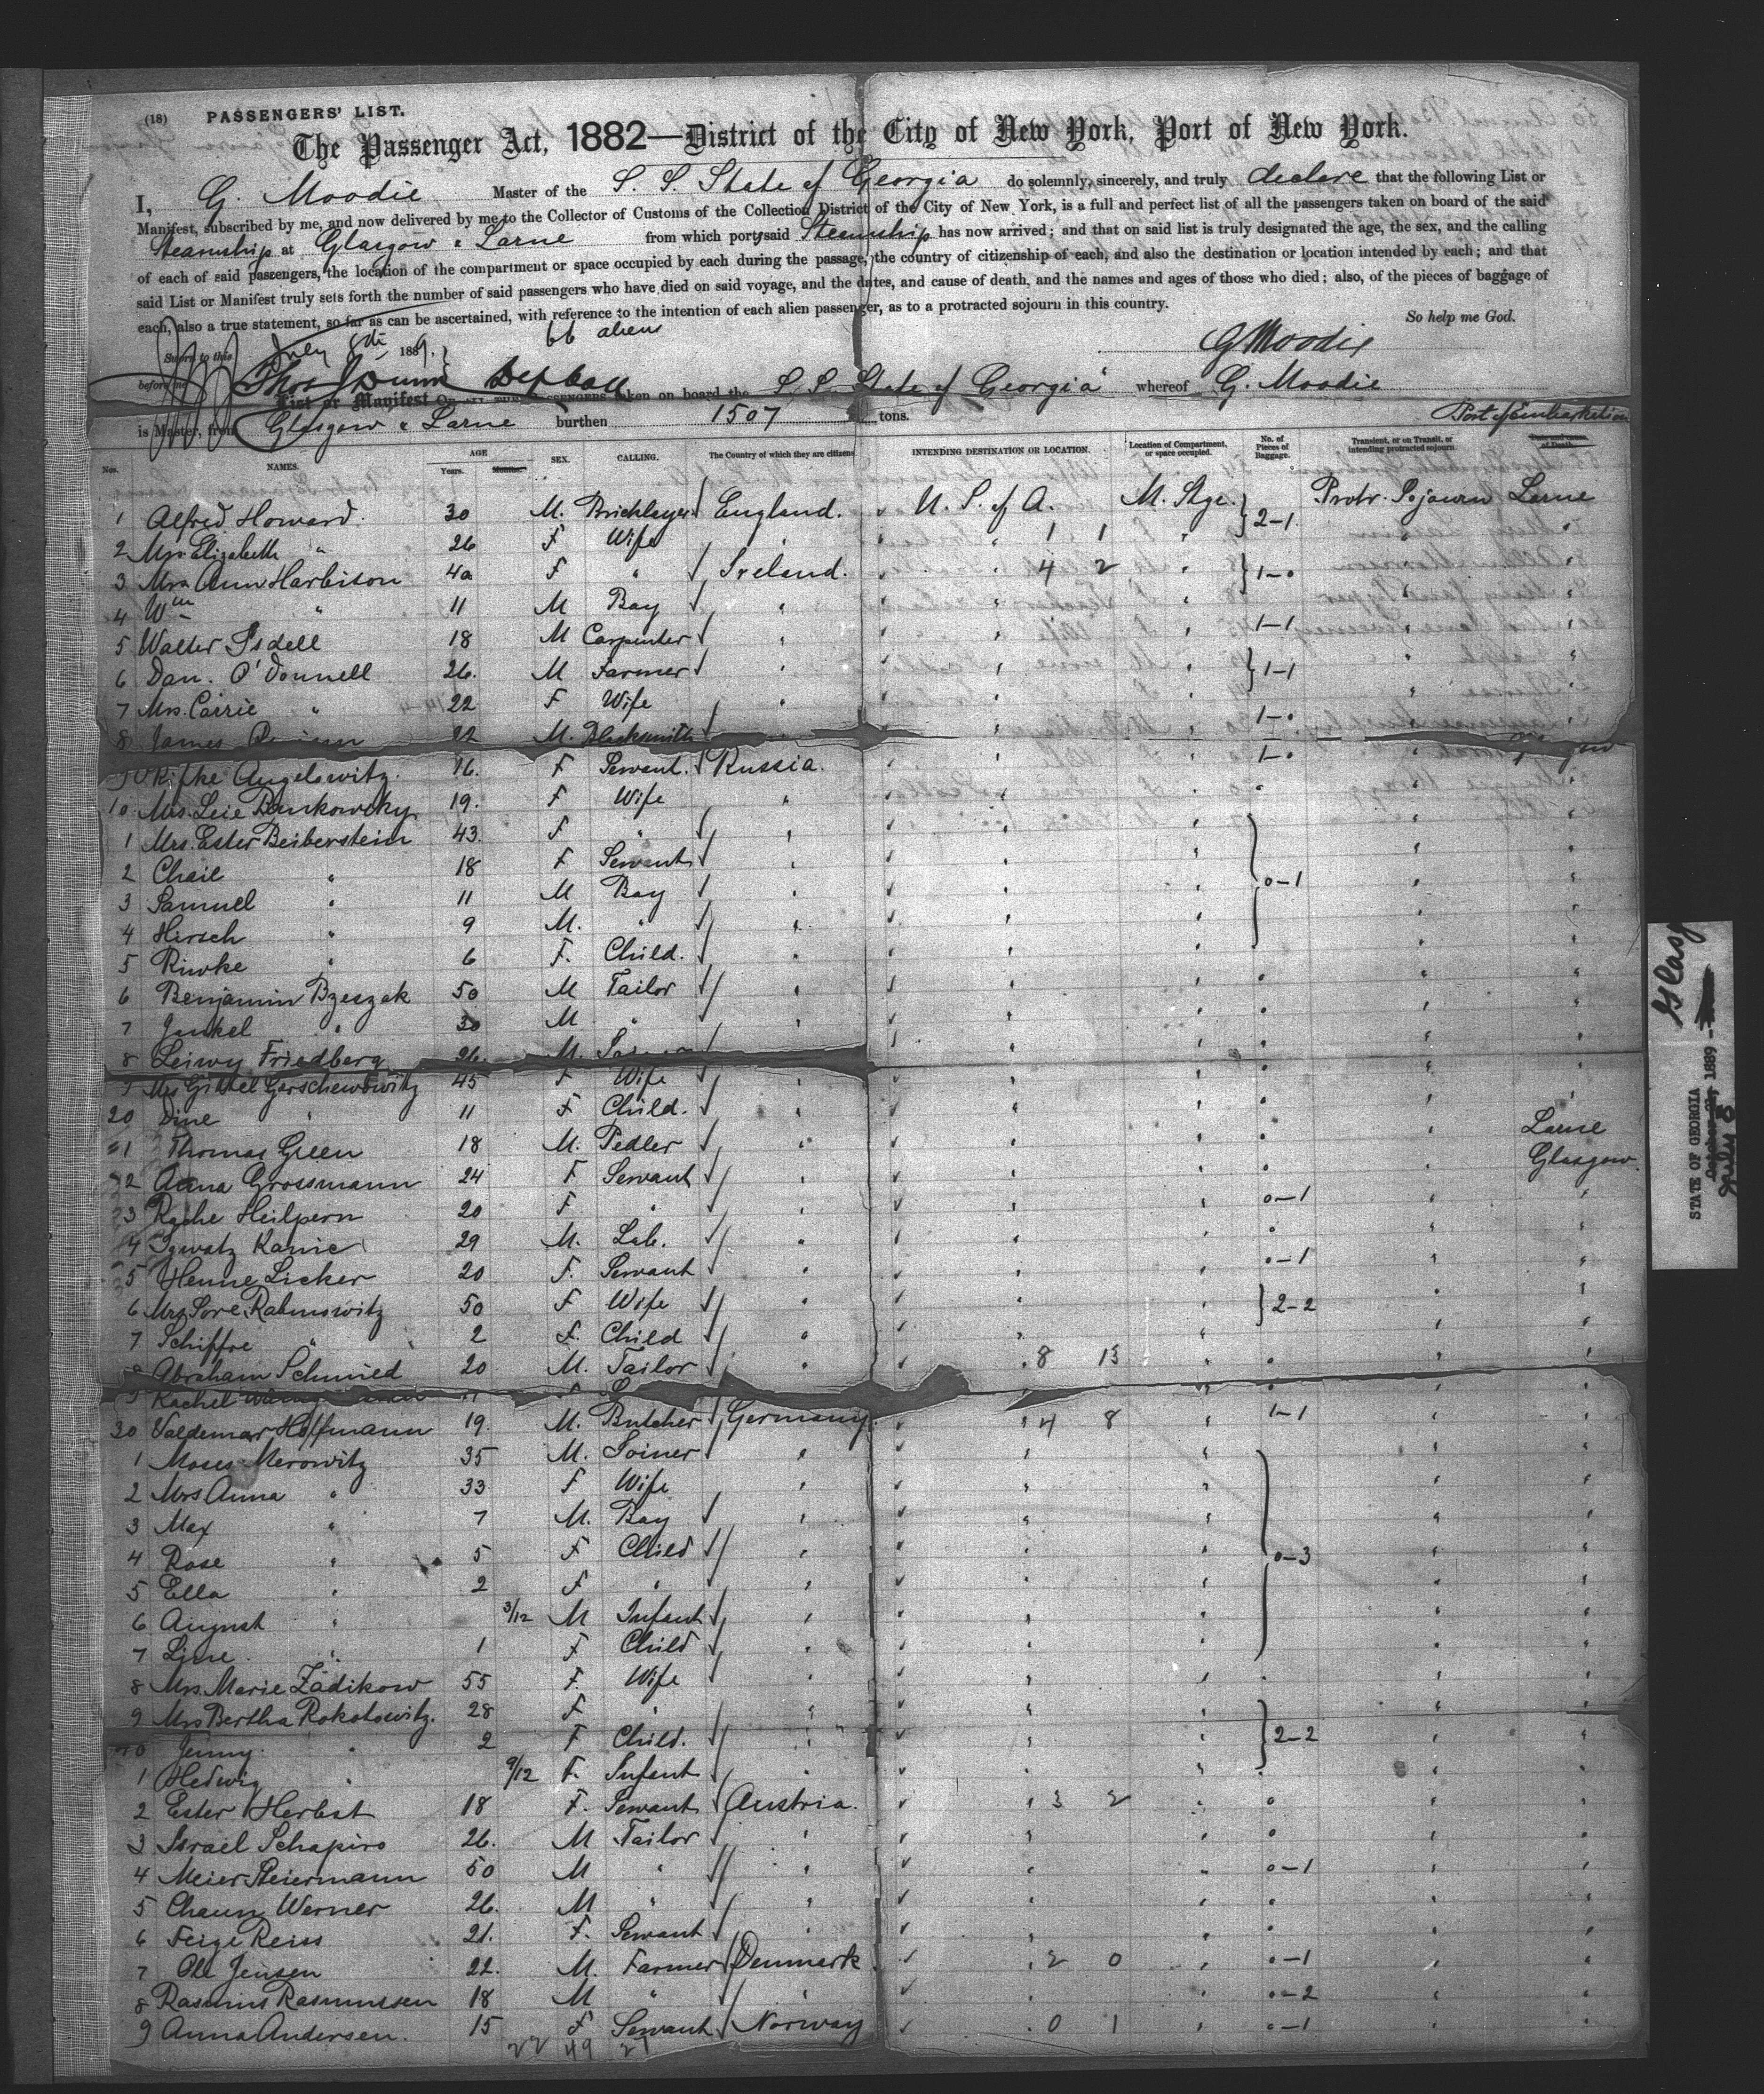 (18) PASSENGERS' LIST.
The Passenger Act, 1882—District of the City of New York, Port of New York.
I, G. Moodie Master of the S. S. State of Georgia do solemnly, sincerely, and truly declare that the following List or
Manifest, subscribed by me, and now delivered by me to the Collector of Customs of the Collection District of the City of New York, is a full and perfect list of all the passengers taken on board of the said
Steamship at Glasgow & Larne from which port, said Steamship has now arrived; and that on said list is truly designated the age, the sex, and the calling
of each of said passengers, the location of the compartment or space occupied by each during the passage, the country of citizenship of each, and also the destination or location intended by each; and that
said List or Manifest truly sets forth the number of said passengers who have died on said voyage, and the dates, and cause of death, and the names and ages of those who died; also, of the pieces of baggage of
each, also a true statement, so far as can be ascertained, with reference to the intention of each alien passenger, as to a protracted sojourn in this country.
So help me God.
66 aliens
Sworn to this July 8th 1889. G Moodie
before me
List or Manifest OF ALL THE PASSENGERS taken on board the S. S. State of Georgia whereof G. Moodie
is Master, from Glasgow & Larne burthen 1507 tons. Port of Embarkation
Nos. NAMES. AGE Years. Months. SEX. CALLING. The Country of which they are citizens. INTENDING DESTINATION OR LOCATION. Location of Compartment, or space occupied. No. of Pieces of Baggage. Transient, or on Transit, or intending protracted sojourn. Date and cause of Death.
1 Alfred Howard. 30 M. Bricklayer England. U. S. of A. M. Stge. 2-1 Protr. Sojourn Larne
2 Mrs. Elizabeth " 26 F Wife " " 1 1 "
3 Mrs Ann Harbison 40 F " Ireland. " 4 2 " 1-0
4 Wm " 11 M Boy " " "
5 Walter Isdell 18 M Carpenter " " " 1-1 "
6 Dan. O'Donnell 26. M Farmer " " " 1-1 "
7 Mrs. Carrie " 22 F Wife " " "
8 James 22 M. Blacksmith " " 1-0
9 Rifke Angelowitz. 16. F Servant. Russia. " " 1-0 "
10 Mrs. Leie Bankowsky 19. F Wife " " " "
1 Mrs. Ester Beiberstein 43. F " " " " "
2 Chaie " 18 F Servant " " " "
3 Samuel " 11 M Boy " " " 0-1 "
4 Hirsch " 9 M. " " " " "
5 Riwke " 6 F. Child. " " " "
6 Benjamin Bzeszak 50 M Tailor " " " "
7 Jankel " 30 M " " " " "
8 Leiwy Friedberg 26. M. " " "
9 Mrs Gittel Gerschewowitz 45 F Wife " " " "
20 Dine " 11 F Child. " " " "
1 Thomas Green 18 M. Pedler " " " " Larne
2 Anna Grossmann 24 F Servant " " " " Glasgow.
3 Rache Heilpern 20 F " " " " 0-1 "
4 Ignatz Kanie 29 M. Lab. " " " "
5 Henne Licker 20 F. Servant " " " 0-1 "
6 Mrs Sore Rabinowitz 50 F Wife " " " 2-2 "
7 Schiffre " 2 F. Child " " " "
8 Abraham Schmied 20 M. Tailor " " 8 13 " "
9 Rachel
30 Valdemar Hoffmann 19. M. Butcher Germany. " 4 8 " 1-1 "
1 Moses Merowitz 35 M. Joiner " " " "
2 Mrs Anna " 33 F Wife " " " "
3 Max " 7 M. Boy " " " "
4 Rose " 5 F Child " " " 0-3 "
5 Ella " 2 F " " " " "
6 August " 3/12 M Infant " " " "
7 Line " 1 F Child " " " "
8 Mrs. Marie Zadikow 55 F. Wife " " " "
9 Mrs Bertha Rokotowitz. 28 F " " " " "
40 Jenny. " 2 F Child. " " " 2-2 "
1 Hedwig " 9/12 F. Infant " " " "
2 Ester Herbst 18 F. Servant Austria. " 3 2 " "
3 Israel Schapiro 26. M Tailor " " " "
4 Meier Steiermann 50 M " " " " 0-1 "
5 Chaun Werner 26. M " " " " "
6 Feige Reiss 21. F. Servant " " " "
7 Ole Jensen 22. M. Farmer Denmark. " 2 0 " 0-1 "
8 Rasmus Rasmussen 18 M " " " " 0-2 "
9 Anna Andersen. 15 F Servant Norway " 0 1 " 0-1 "
22 49 27
Glasg
STATE OF GEORGIA
1889
July 8